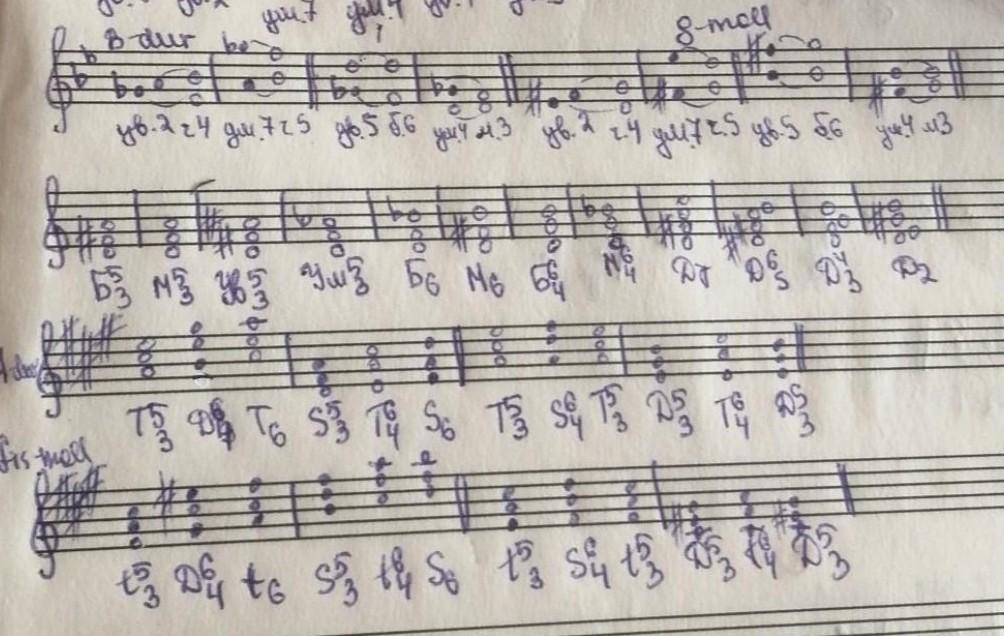 ум.7 ум.4
B-dur g-moll
ув.2 ч4 ум.7 ч5 ув.5 б6 ум4 м.3 ув.2 ч4 ум.7 ч5 ув.5 б6 ум4 м3
Б5/3 М5/3 Ув5/3 Ум5/3 Б6 М6 Б6/4 М6/4 Д7 Д6/5 Д4/3 Д2
A-dur
T5/3 D6/4 T6 S5/3 T6/4 S6 T5/3 S6/4 T5/3 D5/3 T6/4 D5/3
fis-moll
t5/3 D6/4 t6 S5/3 t6/4 S6 t5/3 S6/4 t5/3 D5/3 t6/4 D5/3